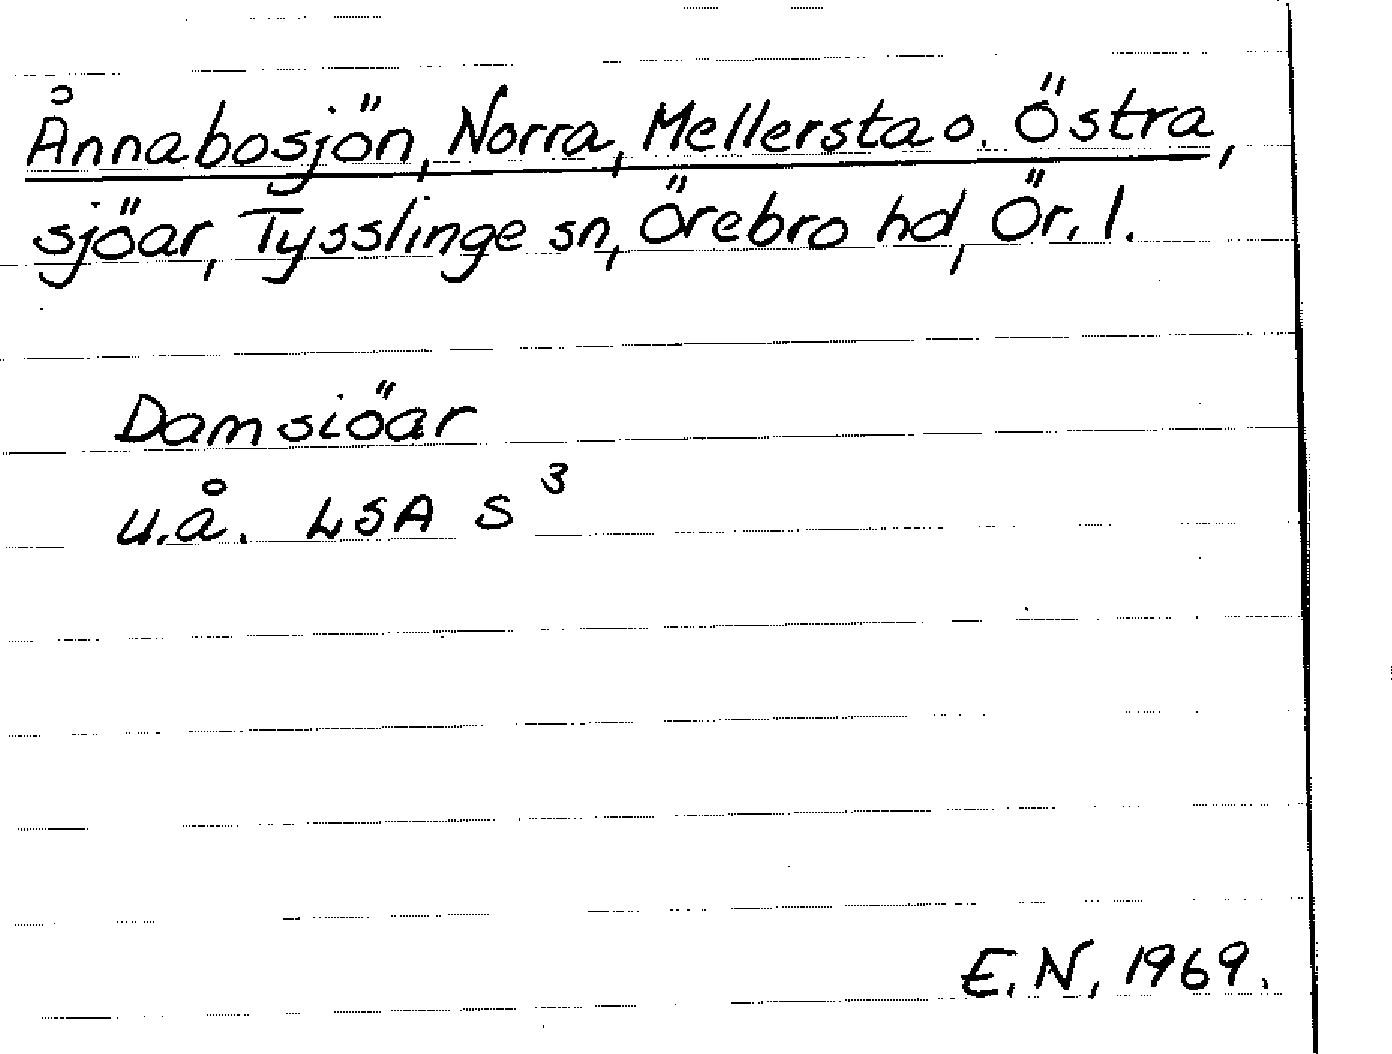 Ånnabosjön, Norra, Mellersta o. Östra,
sjöar, Tysslinge sn, Örebro hd, Ör. l.
Damsiöar
u.å. LSA S 3
E.N. 1969.